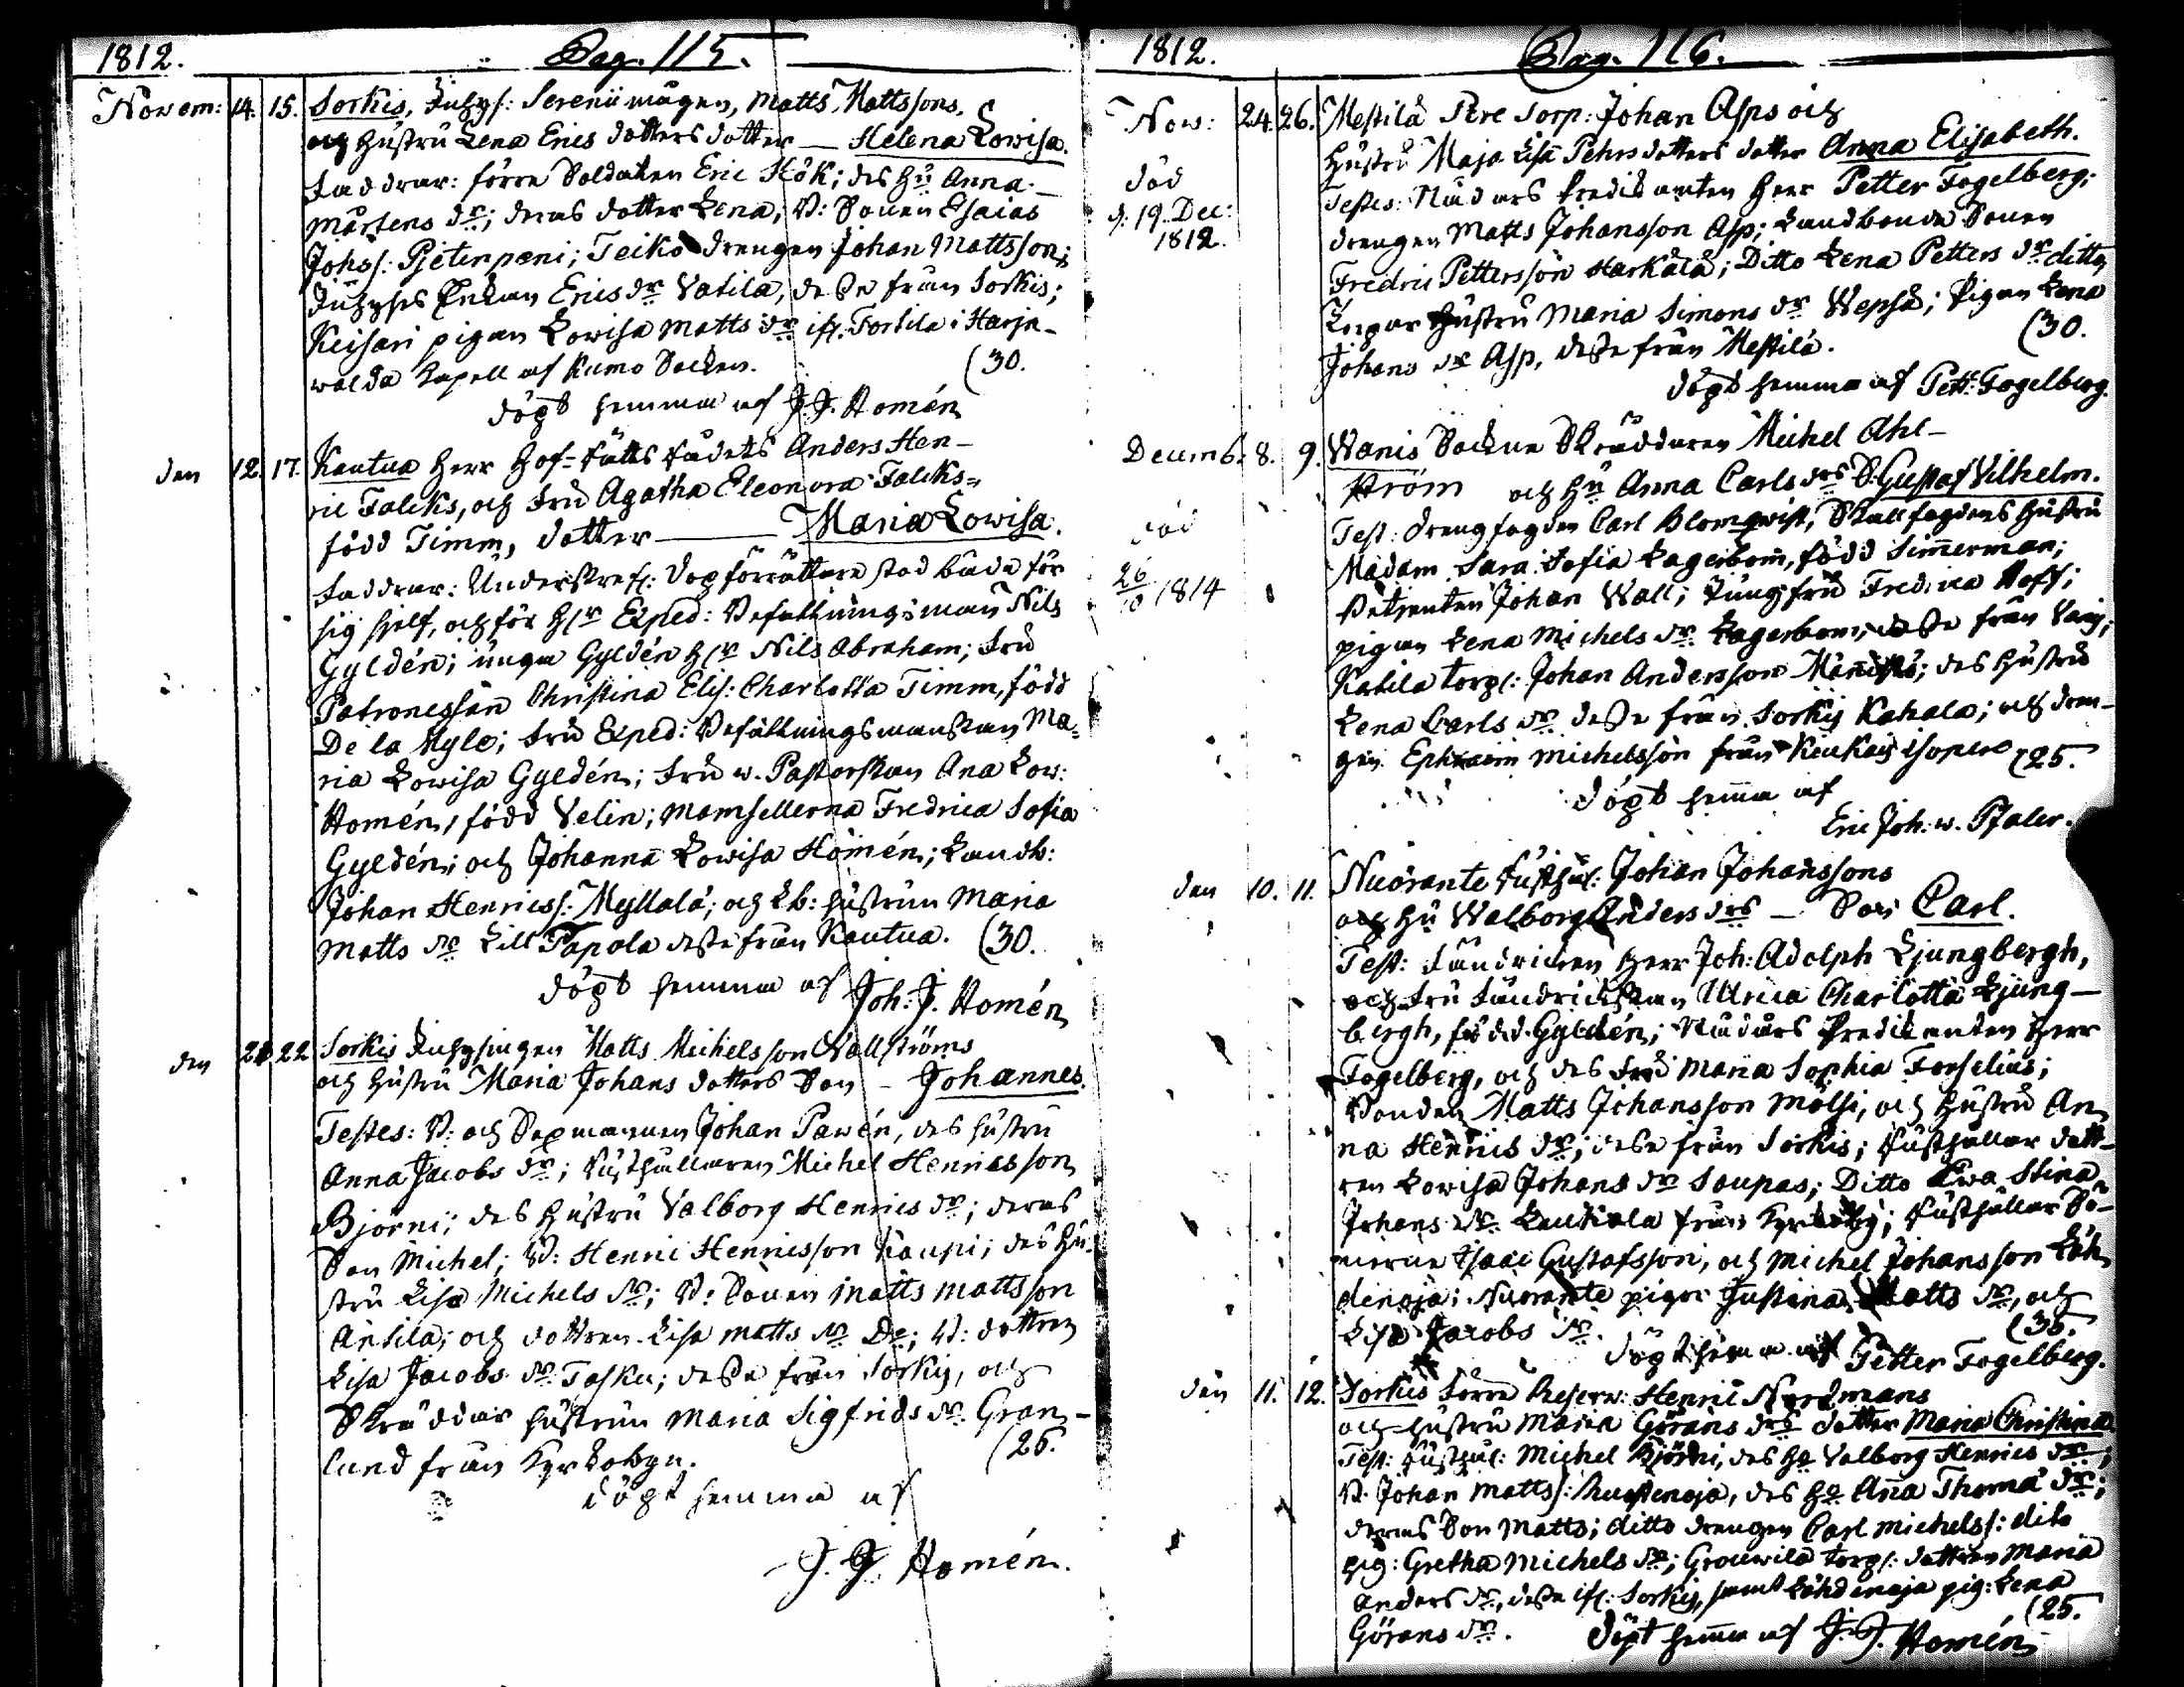 1812. Pag. 115.
Novem: 14. 15. Sorkis, Inhys: Sereniimågen, Matts Mattssons,
och hustru Lena Erics dotters dotter — Helena Lowisa.
Faddrar: förre Soldaten Eric Kök; des hu Anna
Mårtens dr; deras dotter Lena; B: Sonen Esaias
Johss: Pjetinpæni; Teiko drengen Johan Mattsson;
Inhyses Enkan Erics dr Vatila, desse från Sorkis;
Keisari pigan Lowisa Matts dr if. Torttila i Harja-
walda Capell af Kumo Socken. (30.
döpt hemma af J. J. Homén
den 12. 17. Kautua Herr Hof-Rätts Rådets Anders Hen-
ric Falcks, och Fru Agatha Eleonora Falcks=
född Timm, dotter — Maria Lowisa.
Faddrar: Underskrefs: Dopförrättare stod både för
sig sjelf, och för Hr Exped: Befallningsman Nils
Gyldén; unga Gyldén Hr Nils Abraham; Fru
Patronessan Christina Elis: Charlotta Timm, född
De la Myle; Fru Exped: Befallningsmanskan Ma=
ria Lowisa Gyldén; Fru v. Pastorskan Ana Low:
Homén, född Velin; Mamsellerna Fredrica Sofia
Gyldén; och Johanna Lowisa Homén; Landb:
Johan Henricss: Myllälä; och Lb: hustrun Maria
Matts dr Lill Papola desse från Kautua. (30.
döpt hemma af Joh: J. Homén
den 21 22 Sorkis Inhysingen Matts Michelsson Wallströms
och hustru Maria Johans dotters Son — Johannes.
Testes: B: och Sexmannen Johan Pawén, des hustru
Anna Jacobs dr; Rusthållaren Michel Henricsson
Björni; des hustru Valborg Henrics dr; deras
Son Michel; B: Henric Henricsson Kaupi; des hu-
stru Lisa Michels dr; B: Sonen Matts Mattsson
Antila; och dottren Lisa Matts dr Do; B: dottren
Lisa Jacobs dr Tasku; desse från Sorkis, och
Skräddar hustrun Maria Sigfrids dr Gran-
lund från Kyrkobyn. (26.
döpt hemma af
J. J. Homén.
1812. Pag. 116.
Nov: 24. 26. Mestilä Tore torp: Johan Asps och
hustru Maja Lisa Pehrsdotters dotter Anna Elisabeth.
död Testes: Nådårs Predikanten Herr Petter Fogelberg;
d: 19. Dec: drengen Matts Johansson Asp; Landbonde Sonen
1812. Fredric Pettersson Harkålå; Ditto Lena Petters dr ditto
hustru Maria Simons dr Wepsä; Pigan Lena
Johans dr Asp, desse från Mestilä. (30.
döpt hemma af Pett: Fogelberg.
Decemb: 8. 9. Wanis Sockne Skräddaren Michel Ahl-
ström och hu Anna Carls drs S: Gustaf Vilhelm.
död Test: drengfogden Carl Blomqwist, Stallfogdens hustru
Madam Sara Sofia Lagerbom, född Simmerman;
26/10 1814 Johan Wall; Jungfru Fredrica Hoff;
pigan Lena Michels dr Lagerbom, desse från Vanj;
Katila torp: Johan Andersson Männistö; des hustru
Lena Carls dr desse från Sorkis Kahala; och dren-
gen Ephraim Michelsson från Keukais Isopere (25.
döpt hemma af
Eric Joh: v. Pfaler.
den 10. 11. Nuorante Rusthål: Johan Johanssons
och hu Walborg Anders drs — Son Carl.
Test: Fändricken Herr Joh: Adolph Ljungbergh,
och Fru Fändrickskan Ulrica Charlotta Ljung-
bergh, född Gyldén; Nådårs Predikanten Herr
Fogelberg, och des Fru Maria Sophia Forselius;
Bonden Matts Johansson Mölsi, och hustru An-
na Henrics dr; desse från Sorkis; Rusthållar dott-
ren Lowisa Johans dr Saupas; Ditto Ewa Stina
Johans dr Lautiala från Kyrkoby; Rusthållar Sö-
nerne Isaac Gustafsson, och Michel Johansson Löh-
denoja; Nuorante pigor Justina Matts dr, och
Lisa Jacobs dr. (35.
döpt hemma af Petter Fogelberg.
den 11. 12. Sorkis förre Reserv: Henric Nordmans
och hustru Maria Görans drs dotter Maria Christina.
Test: Rusthål: Michel Björni, des ho Valborg Henrics dr;
B. Johan Mattss: Ruostenoja, des ho Anna Thoma dr;
deras Son Matts; ditto drengen Carl Michelss: dito
pig: Gretha Michels dr; Grouwila torp: dottren Maria
Anders dr, desse if. Sorkis, samt Löhdenoja pig: Lena
Görans dr. (25.
döpt hemma af J. J. Homén